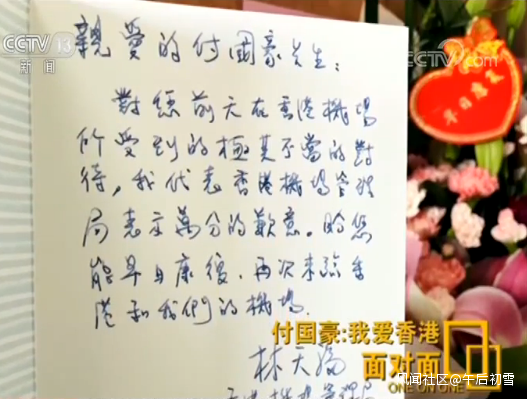 CCTV 13
新闻
CCTV.com
早日康复
親愛的付國豪先生：
對您前天在香港機場
所受到的極其不當的對
待，我代表香港機場管理
局表示萬分的歉意。盼您
能早日康復，再次來臨香
港和我們的機場.
林天福
付国豪:我爱香港
面对面
ONE ON ONE
风闻社区@午后初雪